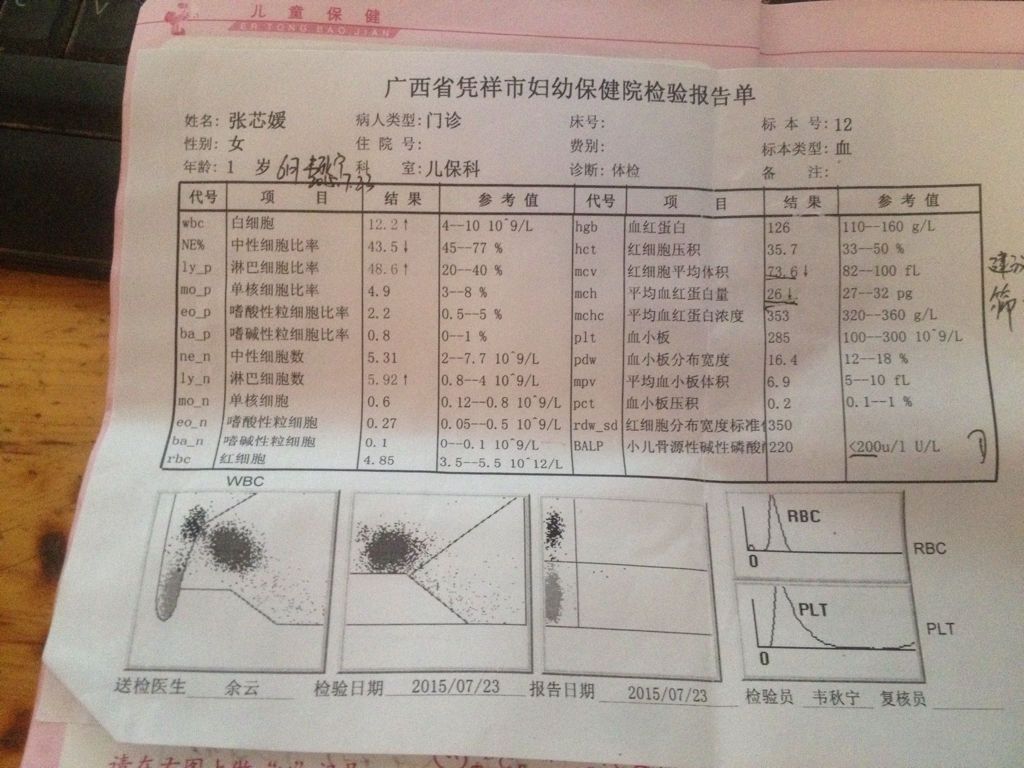 儿童保健
ER TONG BAO JIAN
广西省凭祥市妇幼保健院检验报告单
姓名: 张芯媛 病人类型: 门诊 床号: 标本号: 12
性别: 女 住院号: 费别: 标本类型: 血
年龄: 1 岁 6月 科室: 儿保科 诊断: 体检 备注:
2015.7.23
代号 项目 结果 参考值 代号 项目 结果 参考值
wbc 白细胞 12.2↑ 4--10 10^9/L hgb 血红蛋白 126 110--160 g/L
NE% 中性细胞比率 43.5↓ 45--77 % hct 红细胞压积 35.7 33--50 %
ly_p 淋巴细胞比率 48.6↑ 20--40 % mcv 红细胞平均体积 73.6↓ 82--100 fL
mo_p 单核细胞比率 4.9 3--8 % mch 平均血红蛋白量 26↓ 27--32 pg
eo_p 嗜酸性粒细胞比率 2.2 0.5--5 % mchc 平均血红蛋白浓度 353 320--360 g/L
ba_p 嗜碱性粒细胞比率 0.8 0--1 % plt 血小板 285 100--300 10^9/L
ne_n 中性细胞数 5.31 2--7.7 10^9/L pdw 血小板分布宽度 16.4 12--18 %
ly_n 淋巴细胞数 5.92↑ 0.8--4 10^9/L mpv 平均血小板体积 6.9 5--10 fL
mo_n 单核细胞 0.6 0.12--0.8 10^9/L pct 血小板压积 0.2 0.1--1 %
eo_n 嗜酸性粒细胞 0.27 0.05--0.5 10^9/L rdw_sd 红细胞分布宽度标准 350
ba_n 嗜碱性粒细胞 0.1 0--0.1 10^9/L BALP 小儿骨源性碱性磷酸 220 <200u/l U/L
rbc 红细胞 4.85 3.5--5.5 10^12/L
WBC
RBC
0
RBC
PLT
0
PLT
送检医生 余云 检验日期 2015/07/23 报告日期 2015/07/23 检验员 韦秋宁 复核员